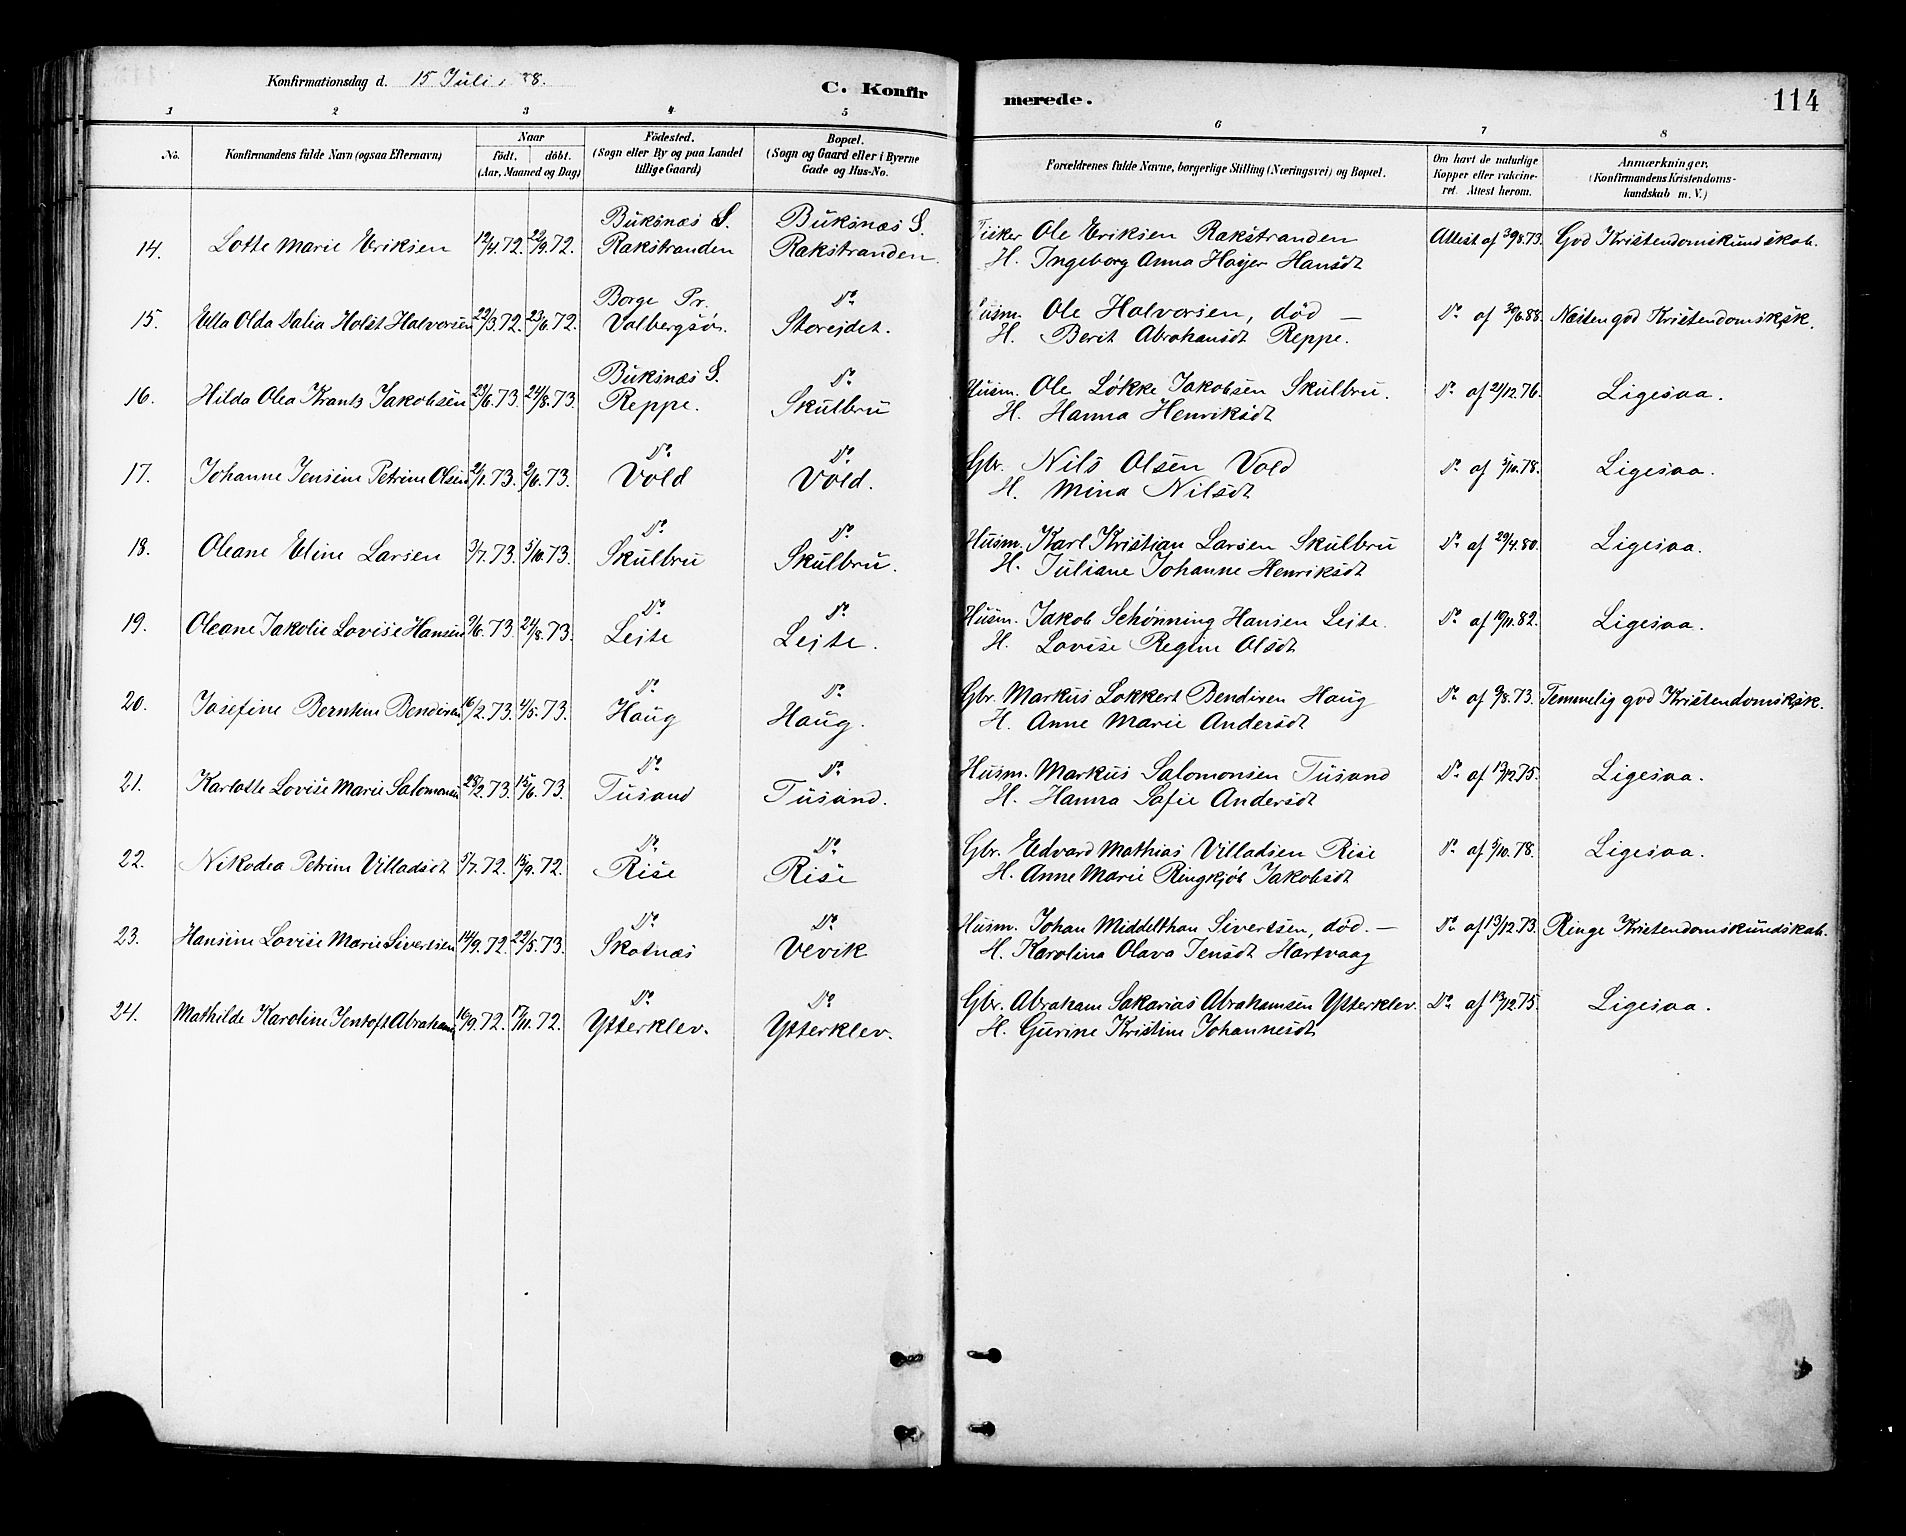 Konfirmationsdag d. 15 Juli 88.
C. Konfirmerede.
114
1 2 3 4 5 6 7 8
No.
Konfirmandens fulde Navn (ogsaa Efternavn)
Naar
födt. döbt.
(Aar, Maaned og Dag)
Födested.
(Sogn eller By og paa Landet
tillige Gaard)
Bopæl.
(Sogn og Gaard eller i Byerne
Gade og Hus-No.
Forældrenes fulde Navne, borgerlige Stilling (Næringsvei) og Bopæl.
Om havt de naturlige
Kopper eller vakcine-
ret. Attest herom.
Anmærkninger.
(Konfirmandens Kristendoms-
kundskab m. V.)
14. Lotte Marie Eriksen 12/4.72. 22/9.72. Buksnæs S. Rakstranden Buksnæs S. Rakstranden. Fisker Ole Eriksen Rakstranden Attest af 30/8.73. God Kristendomskundskab.
H. Ingeborg Anna Høyer Hansdt
15. Ella Olda Dalia Holst Halvorsen 22/3.72. 23/6.72. Borge Pr. Valbergsøn. Do Storejdet. Husm. Ole Halvorsen, død — Do af 30/6.88. Næsten god Kristendomsksk.
H. Berit Abrahamsdt Reppe.
16. Hilda Olea Krants Jakobsen 23/6.73. 24/8.73. Buksnæs S. Reppe. Do Skulbru Husm. Ole Løkke Jakobsen Skulbru. Do af 21/12.76. Ligesaa.
H. Hanna Henriksdt
17. Johanne Jensine Petrine Olsen 2/1.73. 2/6.73. Do Vold Do Vold. Gbr. Nils Olsen Vold Do af 5/10.78. Ligesaa.
H. Mina Nilsdt
18. Oleane Eline Larsen 3/7.73. 5/10.73. Do Skulbru Do Skulbru. Husm. Karl Kristian Larsen Skulbru Do af 29/4.80. Ligesaa.
H. Juliane Johanne Henriksdt
19. Oleane Jakolie Lovise Hansen 9/6.73. 24/8.73. Do Lejte Do Lejte. Husm. Jakob Schønning Hansen Lejte. Do af 19/11.82. Ligesaa.
H. Lovise Regine Olsdt
20. Josefine Bernhine Bendixen 16/2.73. 4/5.73. Do Haug Do Haug. Gbr. Markus Lokkert Bendixen Haug Do af 9/8.73. Temmelig god Kristendomsksk.
H. Anne Marie Andersdt
21. Karlotte Lovise Marie Salomonsen 28/2.73. 15/6.73. Do Tusand Do Tusand. Husm. Markus Salomonsen Tusand Do af 13/12.75. Ligesaa.
H. Hanna Safie Andersdt
22. Nikodea Petrine Villadsdt 5/7.72. 15/9.72. Do Rise Do Rise Gbr. Edvard Mathias Villadsen Rise Do af 5/10.78. Ligesaa.
H. Anne Marie Ringkjøb Jakobsdt
23. Hansine Lovise Marie Sivertsen 14/9.72. 22/5.73. Do Skotnæs Do Vevik Husm. Johan Middelthon Sivertsen, død. — Do af 13/12.73. Ringe Kristendomskundskab.
H. Karolina Olava Jensdt Hartvaag
24. Mathilde Karoline Jentoft Abrahams 16/9.72. 17/11.72. Do Ytterklev. Do Ytterklev. Gbr. Abraham Sakarias Abrahamsen Ytterklev. Do af 13/12.75. Ligesaa.
H. Gurine Kristine Johannesdt